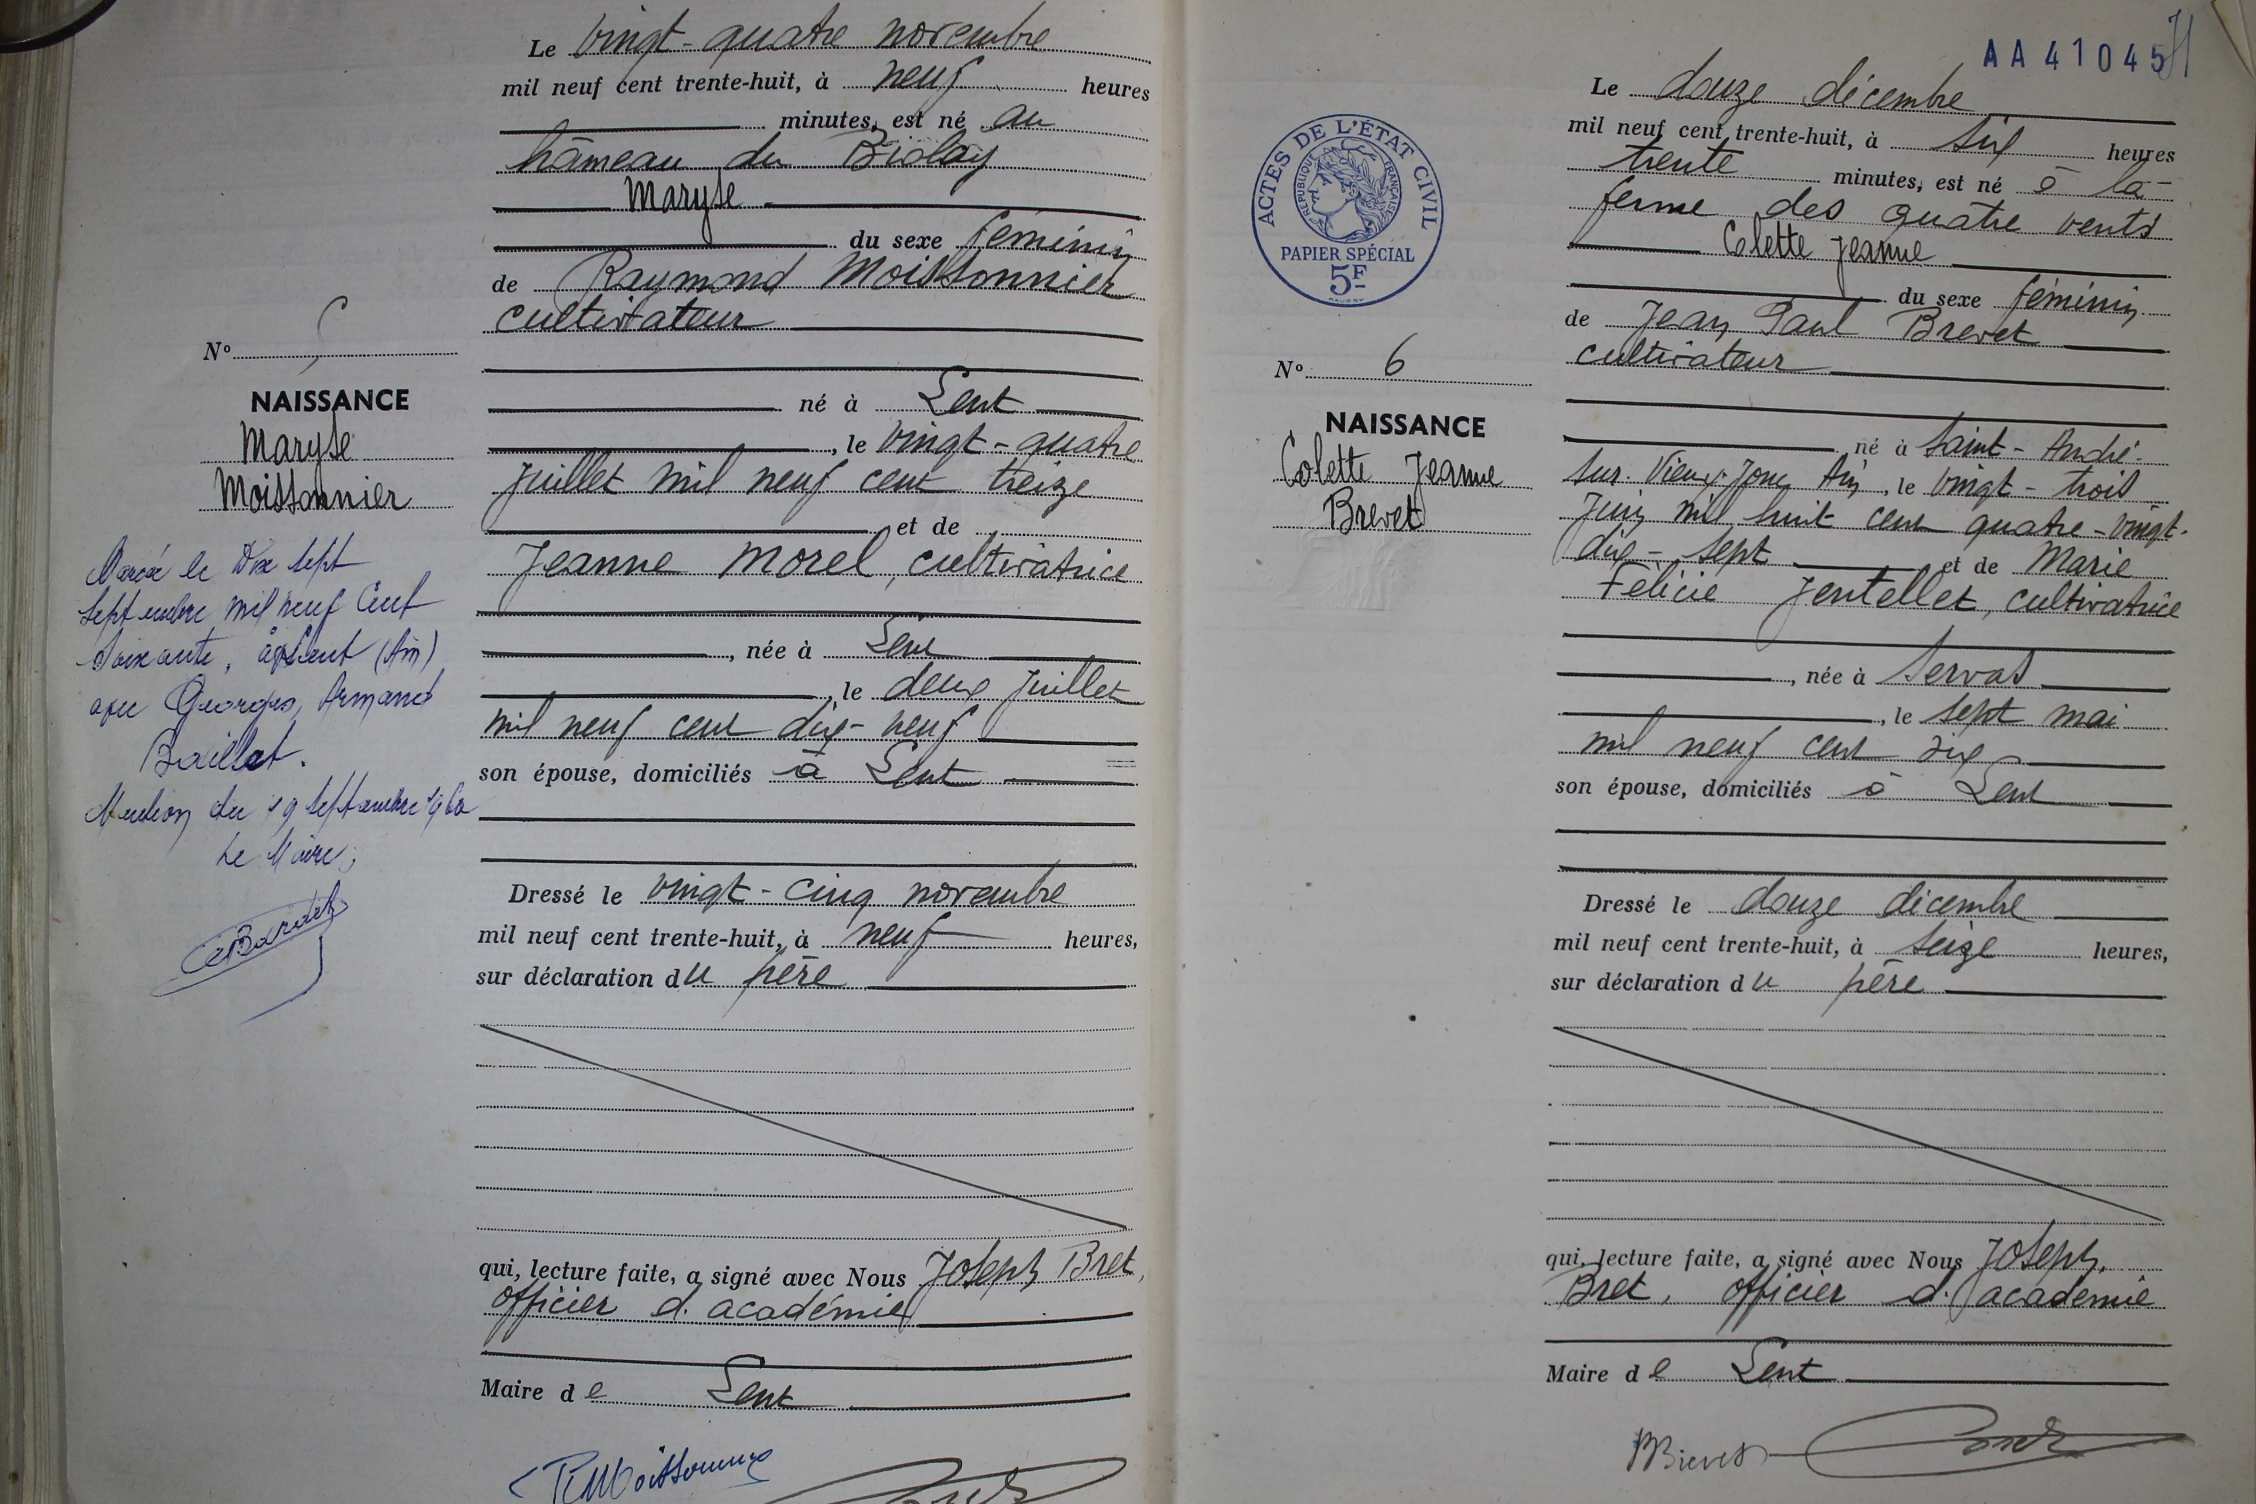 Le vingt-quatre novembre
mil neuf cent trente-huit, à neuf heures
minutes, est né au
hâmeau du Biolay
Maryse
du sexe féminin
de Raymond Moissonnier
cultivateur
né à Lent
, le vingt-quatre
Juillet mil neuf cent treize
et de
Jeanne Morel, cultivatrice
, née à Lent
, le deux Juillet
mil neuf cent dix-neuf
son épouse, domiciliés à Lent
Dressé le vingt-cinq novembre
mil neuf cent trente-huit, à neuf heures,
sur déclaration du père
qui, lecture faite, a signé avec Nous Joseph Bret,
officier d'académie
Maire de Lent
RMoissonnier
No
NAISSANCE
Maryse
Moissonnier
Marié le Dix sept
septembre mil neuf cent
soixante, à Lent (Ain)
avec Georges, Armand
Baillet.
Mention du 19 septembre 1960
Le Maire,
AA41045
71
ACTES DE L'ÉTAT CIVIL
RÉPUBLIQUE FRANÇAISE
PAPIER SPÉCIAL
5F
No 6
NAISSANCE
Colette Jeanne
Brevet
Le douze décembre
mil neuf cent trente-huit, à six heures
trente minutes, est né à la
ferme des quatre vents
Colette Jeanne
du sexe féminin
de Jean Paul Brevet
cultivateur
né à Saint-André-
sur-Vieux-Jonc Ain, le vingt-trois
Juin mil huit cent quatre-vingt-
dix-sept et de Marie
Félicie Jentellet, cultivatrice
, née à Servas
, le sept mai
mil neuf cent dix
son épouse, domiciliés à Lent
Dressé le douze décembre
mil neuf cent trente-huit, à seize heures,
sur déclaration du père
qui, lecture faite, a signé avec Nous Joseph
Bret, officier d'académie
Maire de Lent
Brevet